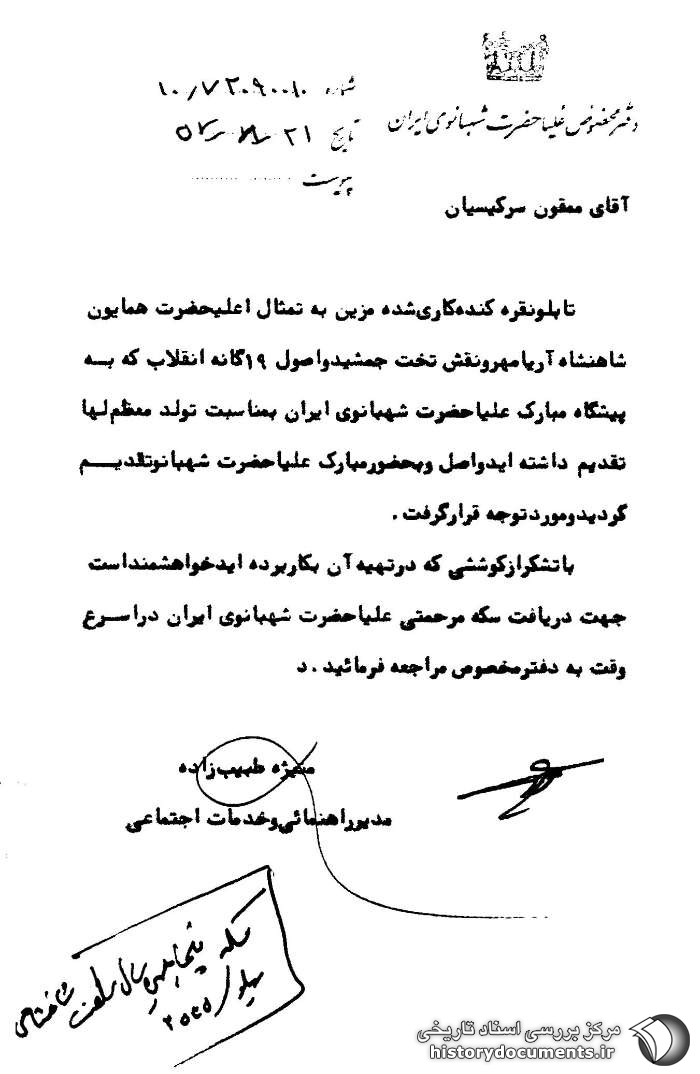 دفتر مخصوص علیاحضرت شهبانوی ایران
شماره
تاریخ ۲۱
پیوست
آقای ممقون سرکیسیان
تابلونقره کنده‌کاری‌شده مزین به تمثال اعلیحضرت همایون
شاهنشاه آریامهرونقش تخت جمشیدواصول ۱۹گانه انقلاب که بــه
پیشگاه مبارک علیاحضرت شهبانوی ایران بمناسبت تولد معظم‌لها
تقدیم داشته ایدواصل وبحضورمبارک علیاحضرت شهبانوتقدیــم
گردیدوموردتوجه قرارگرفت.
باتشکرازکوششی که درتهیه آن بکاربرده ایدخواهشمنداست
جهت دریافت سکه مرحمتی علیاحضرت شهبانوی ایران دراســرع
وقت به دفترمخصوص مراجعه فرمائید.د
منیژه طبیب‌زاده
مدیرراهنمائی‌وخدمات اجتماعی
سکه پنجاهمین سال سلطنت شاهنشاهی
مرکز بررسی اسناد تاریخی
historydocuments.ir